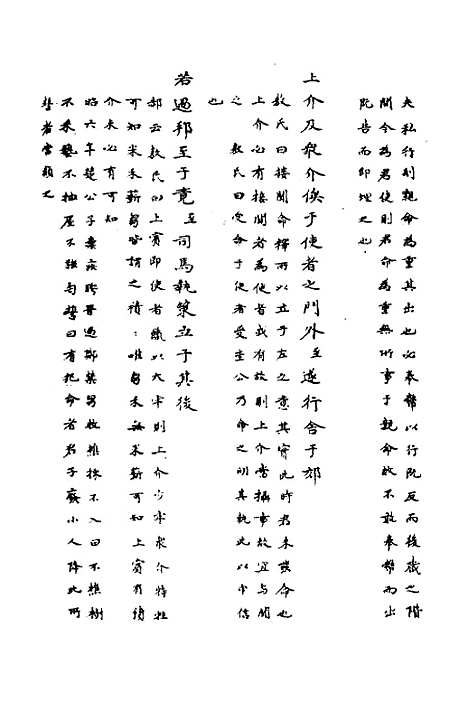 夫私行則親命為重其出也必奉幣以行既反而後藏之階
間今為君使則君命為重無所事于親命故不敢奉幣而出
既告而即埋之也
上介及衆介俟于使者之門外至遂行舍于郊
敖氏曰接聞命擇所以立于左之意其實此時君未發命也
上介必有接聞者為使者或有故則上介當攝事故宜與聞
之　敖氏曰受命于使者受圭公乃命之明其執此以申信
也
若過邦至于竟至司馬執策立于其後
郝云敖氏曰上賓即使者餼以大牢則上介少牢衆介特牲
可知米禾薪芻皆謂之積唯芻禾無米薪可知上賓有積
介未必有可知
昭六年楚公子棄疾聘晉過鄭禁芻牧樵採不入田不樵樹
不采蓺不抽屋不強匄誓曰有犯命者君子廢小人降此所
誓者當類之